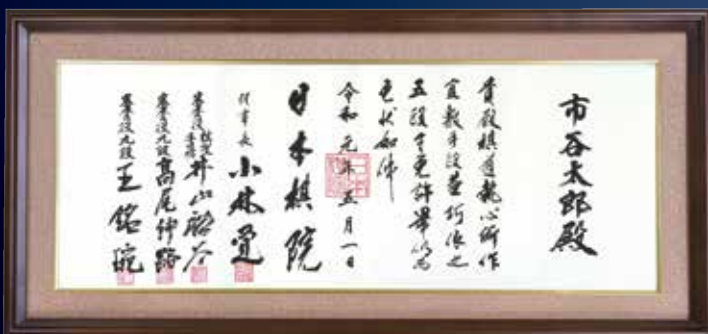 市谷太郎殿
貴殿棋道執心所作
宜敷手段益巧依之
五段令免許畢仍而
免状如件
令和元年五月一日
日本棋院
理事長 小林覚
審査役 井山裕太
審査役九段 高尾紳路
審査役九段 王銘琬